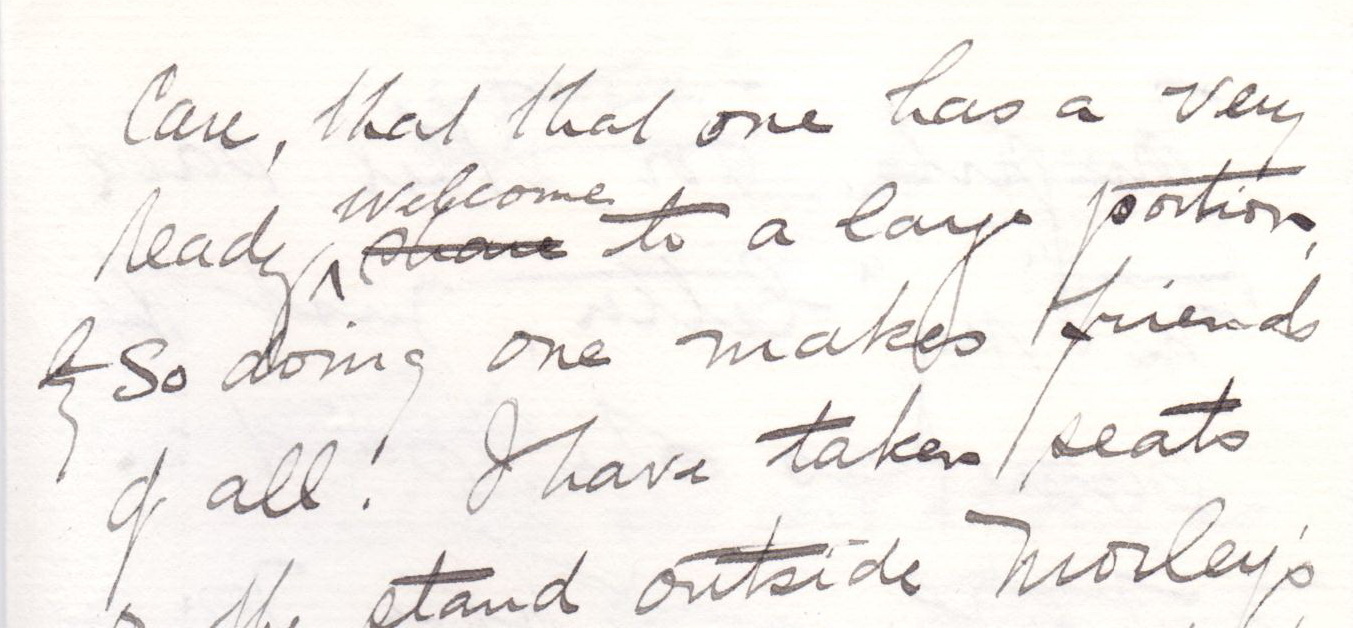 Care, that that one has a very
ready welcome share to a large portion,
by so doing one makes friends
of all! I have taken seats
the stand outside Morley's